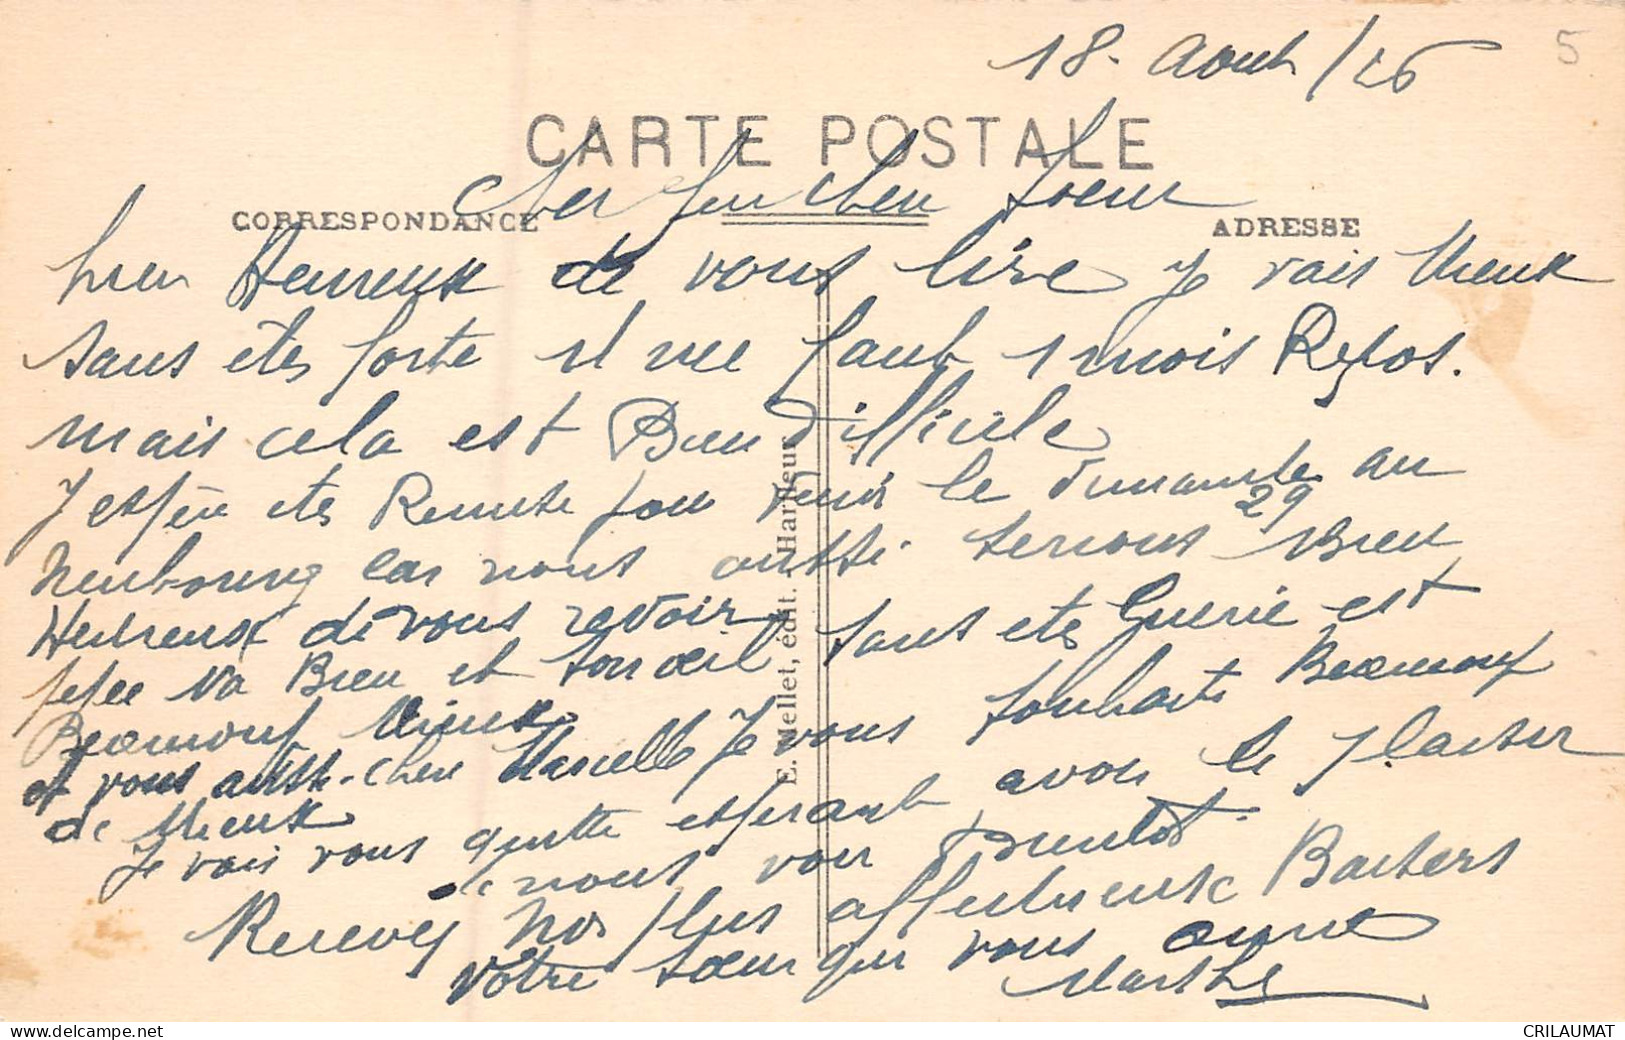 18. Aout /26
5
CARTE POSTALE
CORRESPONDANCE
ADRESSE
Cher cher Soeur
bien Heureux de vous lire Je vais Mieux
sans etes forte il me faut 1 mois Repos.
mais cela est Bien difficile
J espere etes Remise pour venir le dimanche 29 au
Neubourg car nous aussi serions Bien
Heureux de vous revoir sans etes Guerie est
va Bien et son oeil
Beaucoup Mieux
et vous aussi. chere Marcelle Je vous souhaite Beaucoup
de Mieux
Je vais vous quitte esperant avoir le plaisir
de nous voir bientot
Recevez Nos plus affectueuse Baisers
Votre soeur qui vous aime
Marthe
E. Mellet, édit. Harfleur
CRILAUMAT